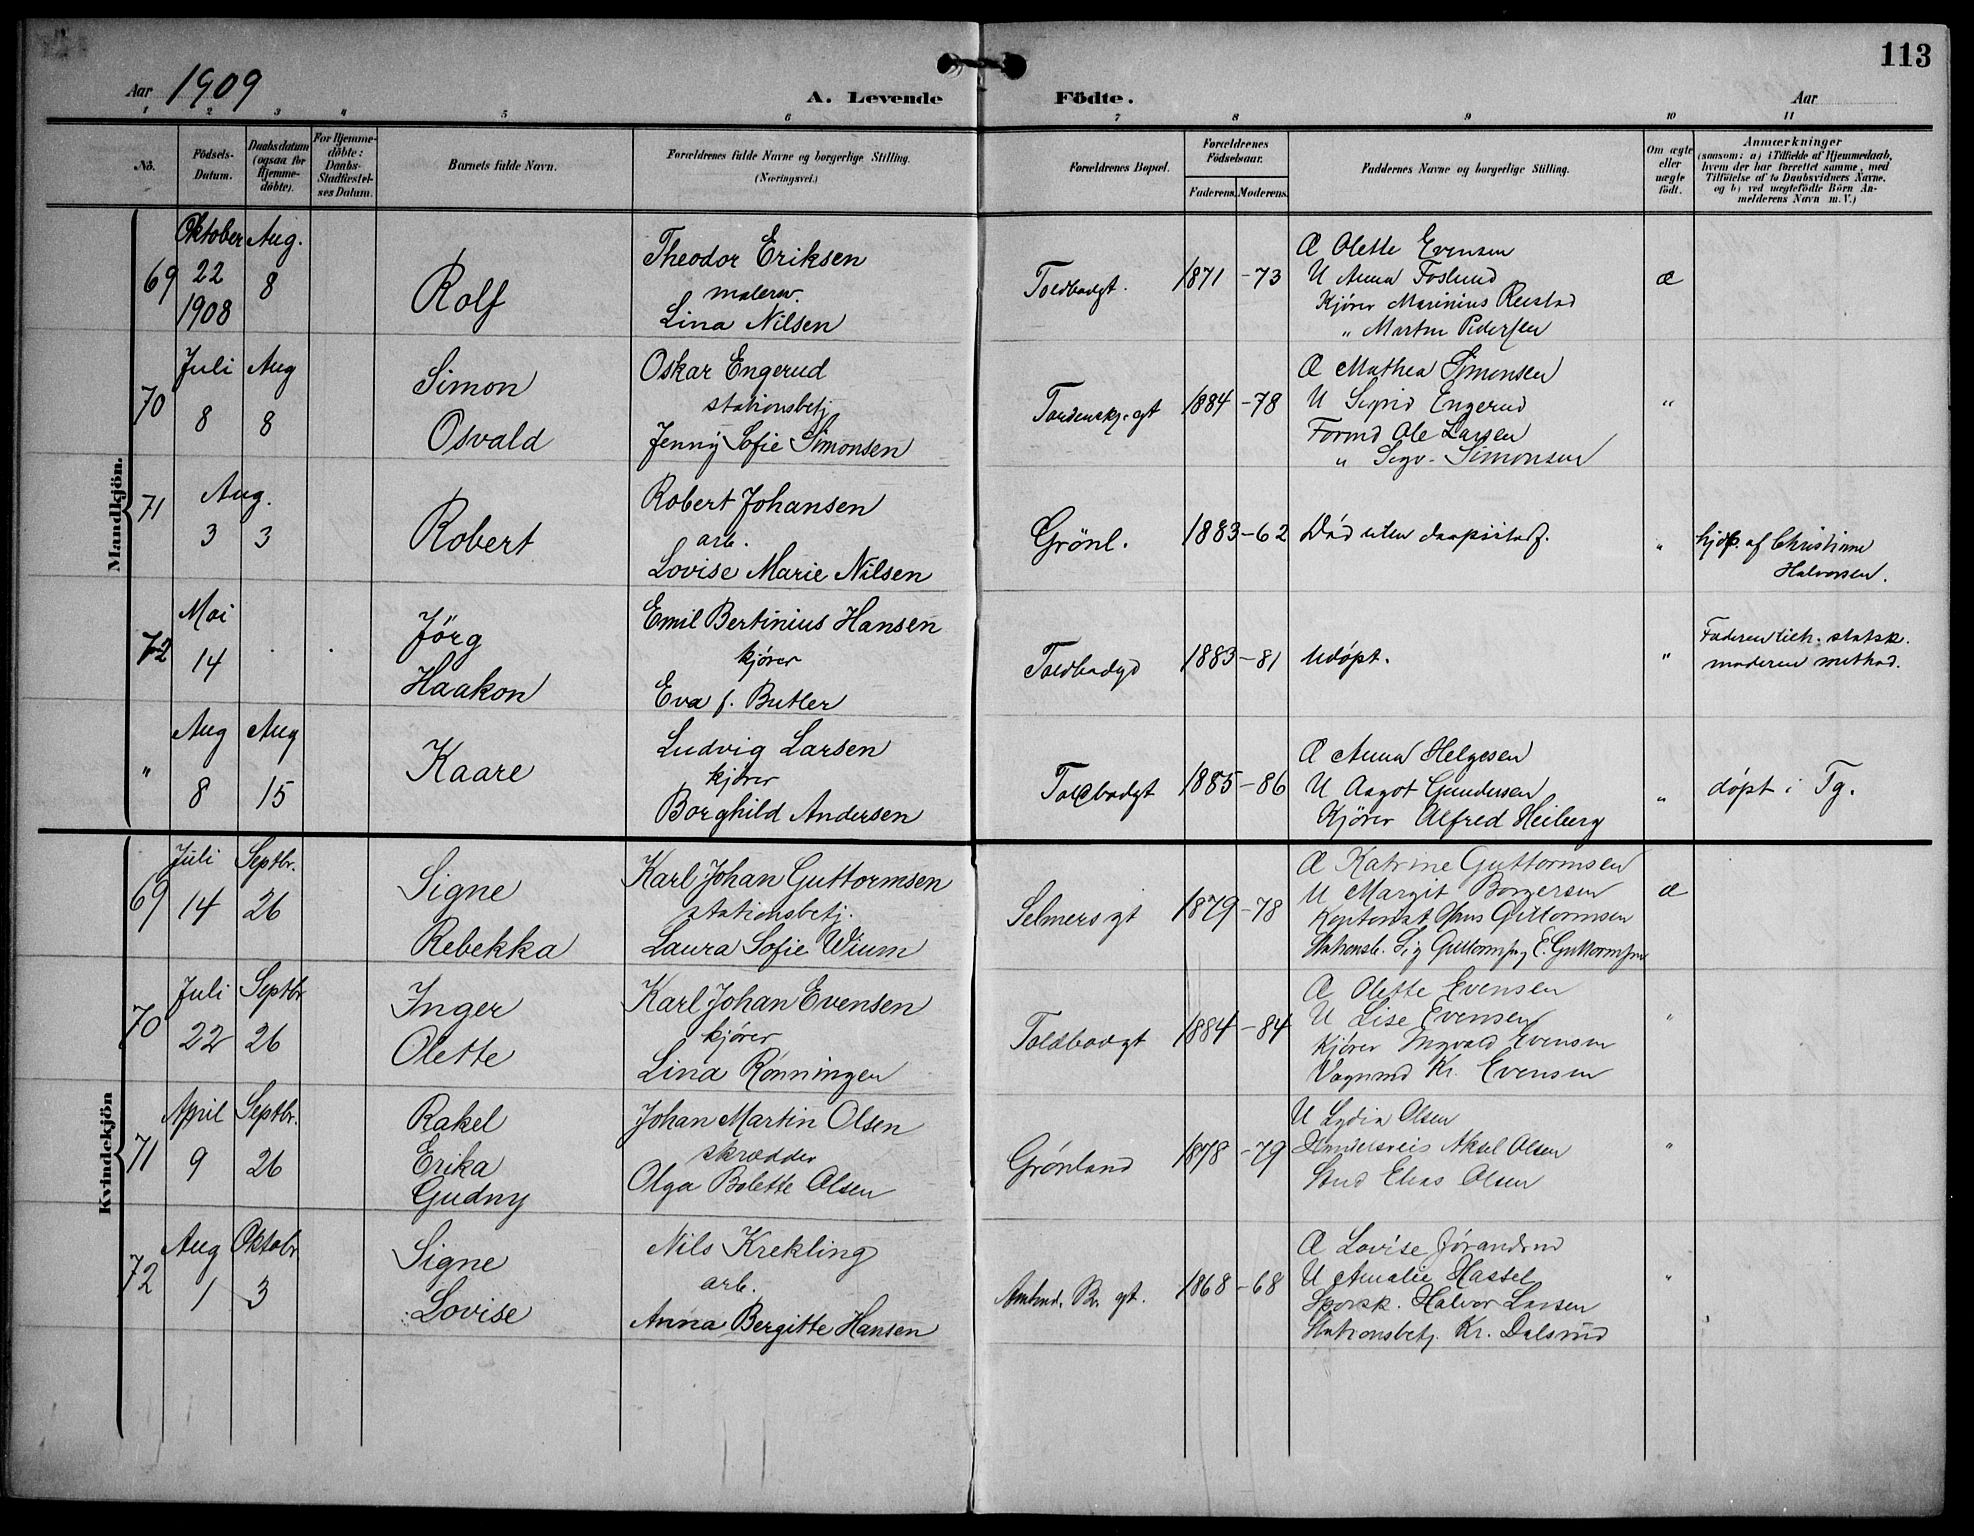 113
Aar 1909
A. Levende Födte.
Aar
1 2 3 4 5 6 7 8 9 10 11
No.
Födsels-Datum.
Daabsdatum (ogsaa for Hjemme-döbte).
For Hjemme-döbte: Daabs-Stadfæstel-ses Datum.
Barnets fulde Navn.
Forældrenes fulde Navne og borgerlige Stilling. (Næringsvei.)
Forældrenes Bopæl.
Forældrenes Födselsaar.
Faderens. Moderens.
Faddernes Navne og borgerlige Stilling.
Om ægte eller uægte födt.
Anmærkninger
(saasom: a) i Tilfælde af Hjemmedaab,
hvem der har forrettet samme, med
Tilföielse af to Daabsvidners Navne,
og b) ved uægtefödte Börn An-
melderens Navn m. V.)
Mandkjön.
69 Oktober 22 1908 Aug. 8
Rolf
Theodor Eriksen
maler
Lina Nilsen
Toldbodgt. 1871 -73
Æ Olette Evensen
U Anna Foslund
Kjører Marinius Rustad
" Martin Pedersen
æ
70 Juli 8 Aug 8
Simon
Osvald
Oskar Engerud
stationsbetj
Jenny Sofie Simonsen
Tordenskj. gt 1884 -78
Æ Mathea Simonsen
U Sigrid Engerud
Formd Ole Larsen
" Sigv. Simonsen
"
71 Aug. 3 3
Robert
Robert Johansen
arb.
Lovise Marie Nilsen
Grönl. 1883 -62
Død uten daapsstadf.
"
hjdp. af Christiane
Halvorsen.
72 Mai 14
Jörg
Haakon
Emil Bertinius Hansen
kjører
Eva f. Butler
Toldbodgd 1883 -81
Udøpt.
"
Faderen tilh. statsk.
moderen method.
" Aug 8 Aug 15
Kaare
Ludvig Larsen
kjører
Borghild Andersen
Toldbodgt 1885 -86
Æ Anna Helgesen
U Aagot Gundersen
Kjører Alfred Heiberg
"
døpt i Tg.
Kvindekjön
69 Juli 14 Septbr. 26
Signe
Rebekka
Karl Johan Guttormsen
stationsbetj.
Laura Sofie Wium
Selmers gt 1879 -78
Æ Katrine Guttormsen
U Margit Borgersen
Kontorist Guttormsen
Stationsb. Sig Guttormsen, E. Guttormsen
æ
70 Juli 22 Septbr 26
Inger
Olette
Karl Johan Evensen
kjører
Lina Rønningen
Toldbodgt 1884 -84
Æ Olette Evensen
U Lise Evensen
Kjører Ingvald Evensen
Vognmd Kr. Evensen
"
71 April 9 Septbr. 26
Rakel
Erika
Gudny
Johan Martin Olsen
skrædder
Olga Bolette Olsen
Grönland 1878 -79
U Lydia Olsen
Handelsreis Aksel Olsen
Stud Elias Olsen
"
72 Aug 1 Oktobr 3
Signe
Lovise
Nils Krekling
arb.
Anna Bergitte Hansen
Amtmd. Bl. gt. 1868 -68
Æ Lovise Jørandrud
U Amalie Hassel
Sporsk. Halvor Larsen
Stationsbetj. Kr. Dalsrud
"